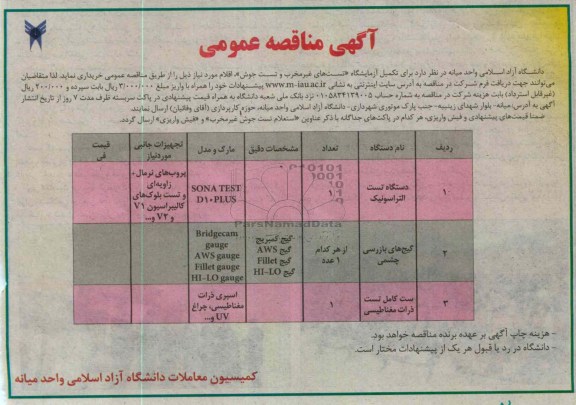 آگهی مناقصه عمومی
دانشگاه آزاد اسلامی واحد میانه در نظر دارد برای تکمیل آزمایشگاه «تست‌های غیرمخرب و تست جوش»، اقلام مورد نیاز ذیل را از طریق مناقصه عمومی خریداری نماید. لذا متقاضیان
می‌توانند جهت دریافت فرم شرکت در مناقصه به آدرس سایت اینترنتی به نشانی www.m-iau.ac.ir پیشنهادات خود را همراه با واریز مبلغ ۳/۰۰۰/۰۰۰ ریال بابت سپرده و ۲۰۰/۰۰۰ ریال
(غیرقابل استرداد) بابت هزینه شرکت در مناقصه به شماره حساب ۰۱۰۵۸۳۴۱۳۹۰۰۵ نزد بانک ملی شعبه دانشگاه به همراه قیمت پیشنهادی در پاکت سربسته ظرف مدت ۷ روز از تاریخ انتشار
آگهی به آدرس: میانه- بلوار شهدای زینبیه- جنب پارک موتوری شهرداری- دانشگاه آزاد اسلامی واحد میانه، حوزه کارپردازی (آقای وفائیان) ارسال نمایند.
ضمنا قیمت‌های پیشنهادی و فیش واریزی، هر کدام در پاکت‌های جداگانه با ذکر عناوین «استعلام تست جوش غیرمخرب» و «فیش واریزی» ارسال گردد.
ردیف نام دستگاه تعداد مشخصات دقیق مارک و مدل تجهیزات جانبی موردنیاز قیمت فی
۱ دستگاه تست التراسونیک ۱ SONA TEST D10PLUS پروب‌های نرمال- زاویه‌ای و تست بلوک‌های کالیبراسیون V1 و V2 و...
۲ گیج‌های بازرسی چشمی از هر کدام ۱ عدد گیج کمبریج گیج AWS گیج Fillet گیج HI-LO Bridgecam gauge AWS gauge Fillet gauge HI-LO gauge
۳ ست کامل تست ذرات مغناطیسی ۱ اسپری ذرات مغناطیسی، چراغ UV و...
ParsNamadData
- هزینه چاپ آگهی بر عهده برنده مناقصه خواهد بود.
- دانشگاه در رد یا قبول هر یک از پیشنهادات مختار است.
کمیسیون معاملات دانشگاه آزاد اسلامی واحد میانه